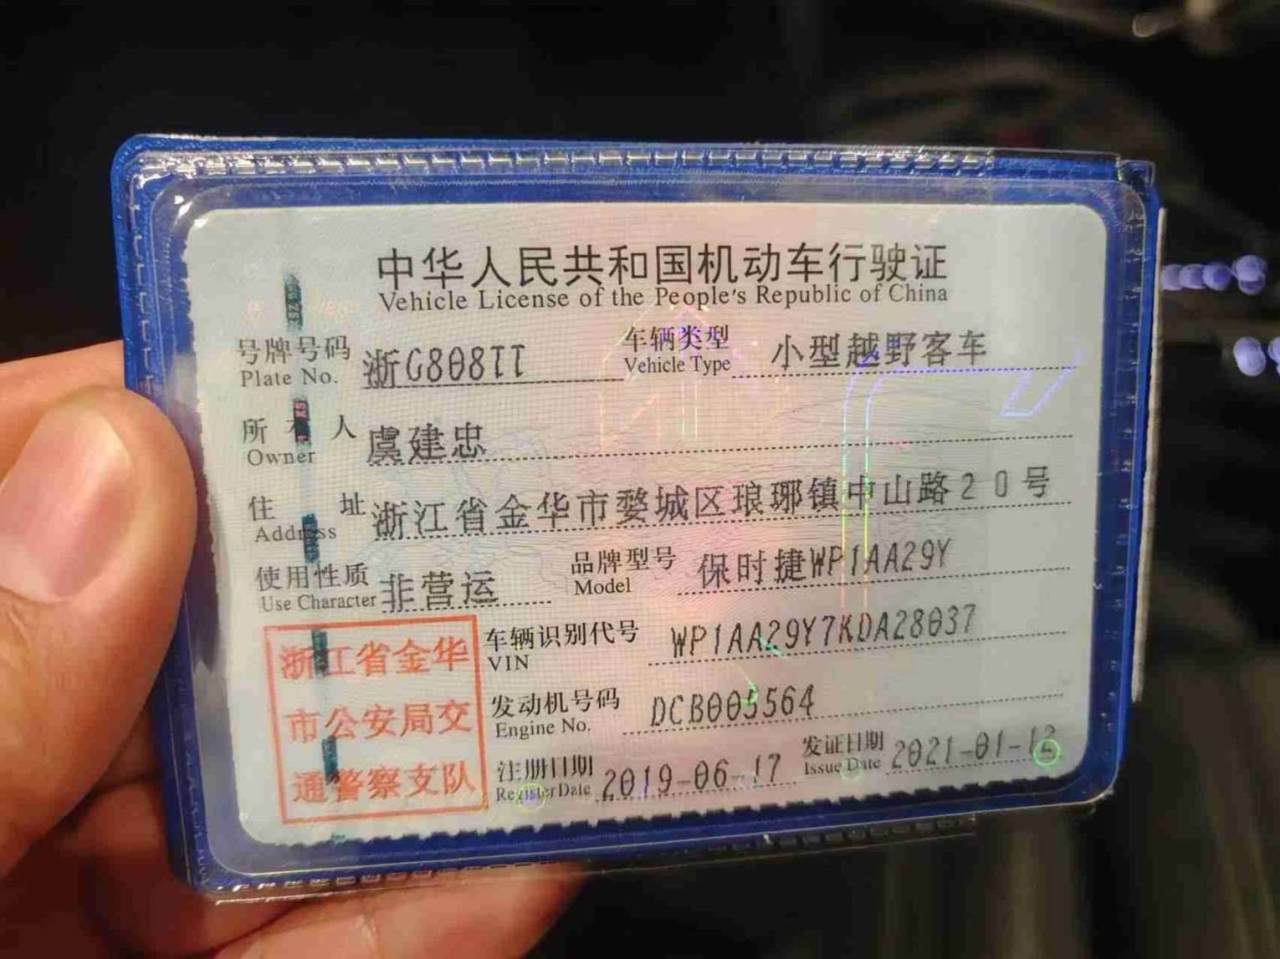 中华人民共和国机动车行驶证
Vehicle License of the People's Republic of China
号牌号码 浙G808TT 车辆类型 小型越野客车
Plate No. Vehicle Type
所有人 虞建忠
Owner
住址 浙江省金华市婺城区琅琊镇中山路20号
Address
使用性质 非营运 品牌型号 保时捷WP1AA29Y
Use Character Model
浙江省金华 车辆识别代号 WP1AA29Y7KDA28037
VIN
市公安局交 发动机号码 DCB005564
Engine No.
通警察支队 注册日期 2019-06-17 发证日期 2021-01-12
Register Date Issue Date